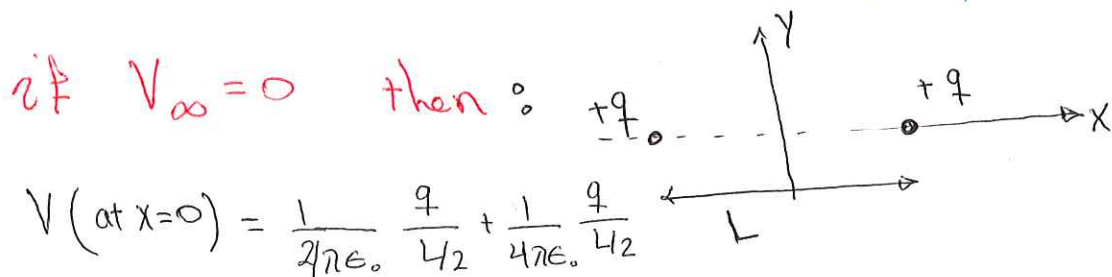 if V∞ = 0 then :
Y
+q
+q
X
V (at x=0) = 1/4πε₀ q/L/2 + 1/4πε₀ q/L/2
L